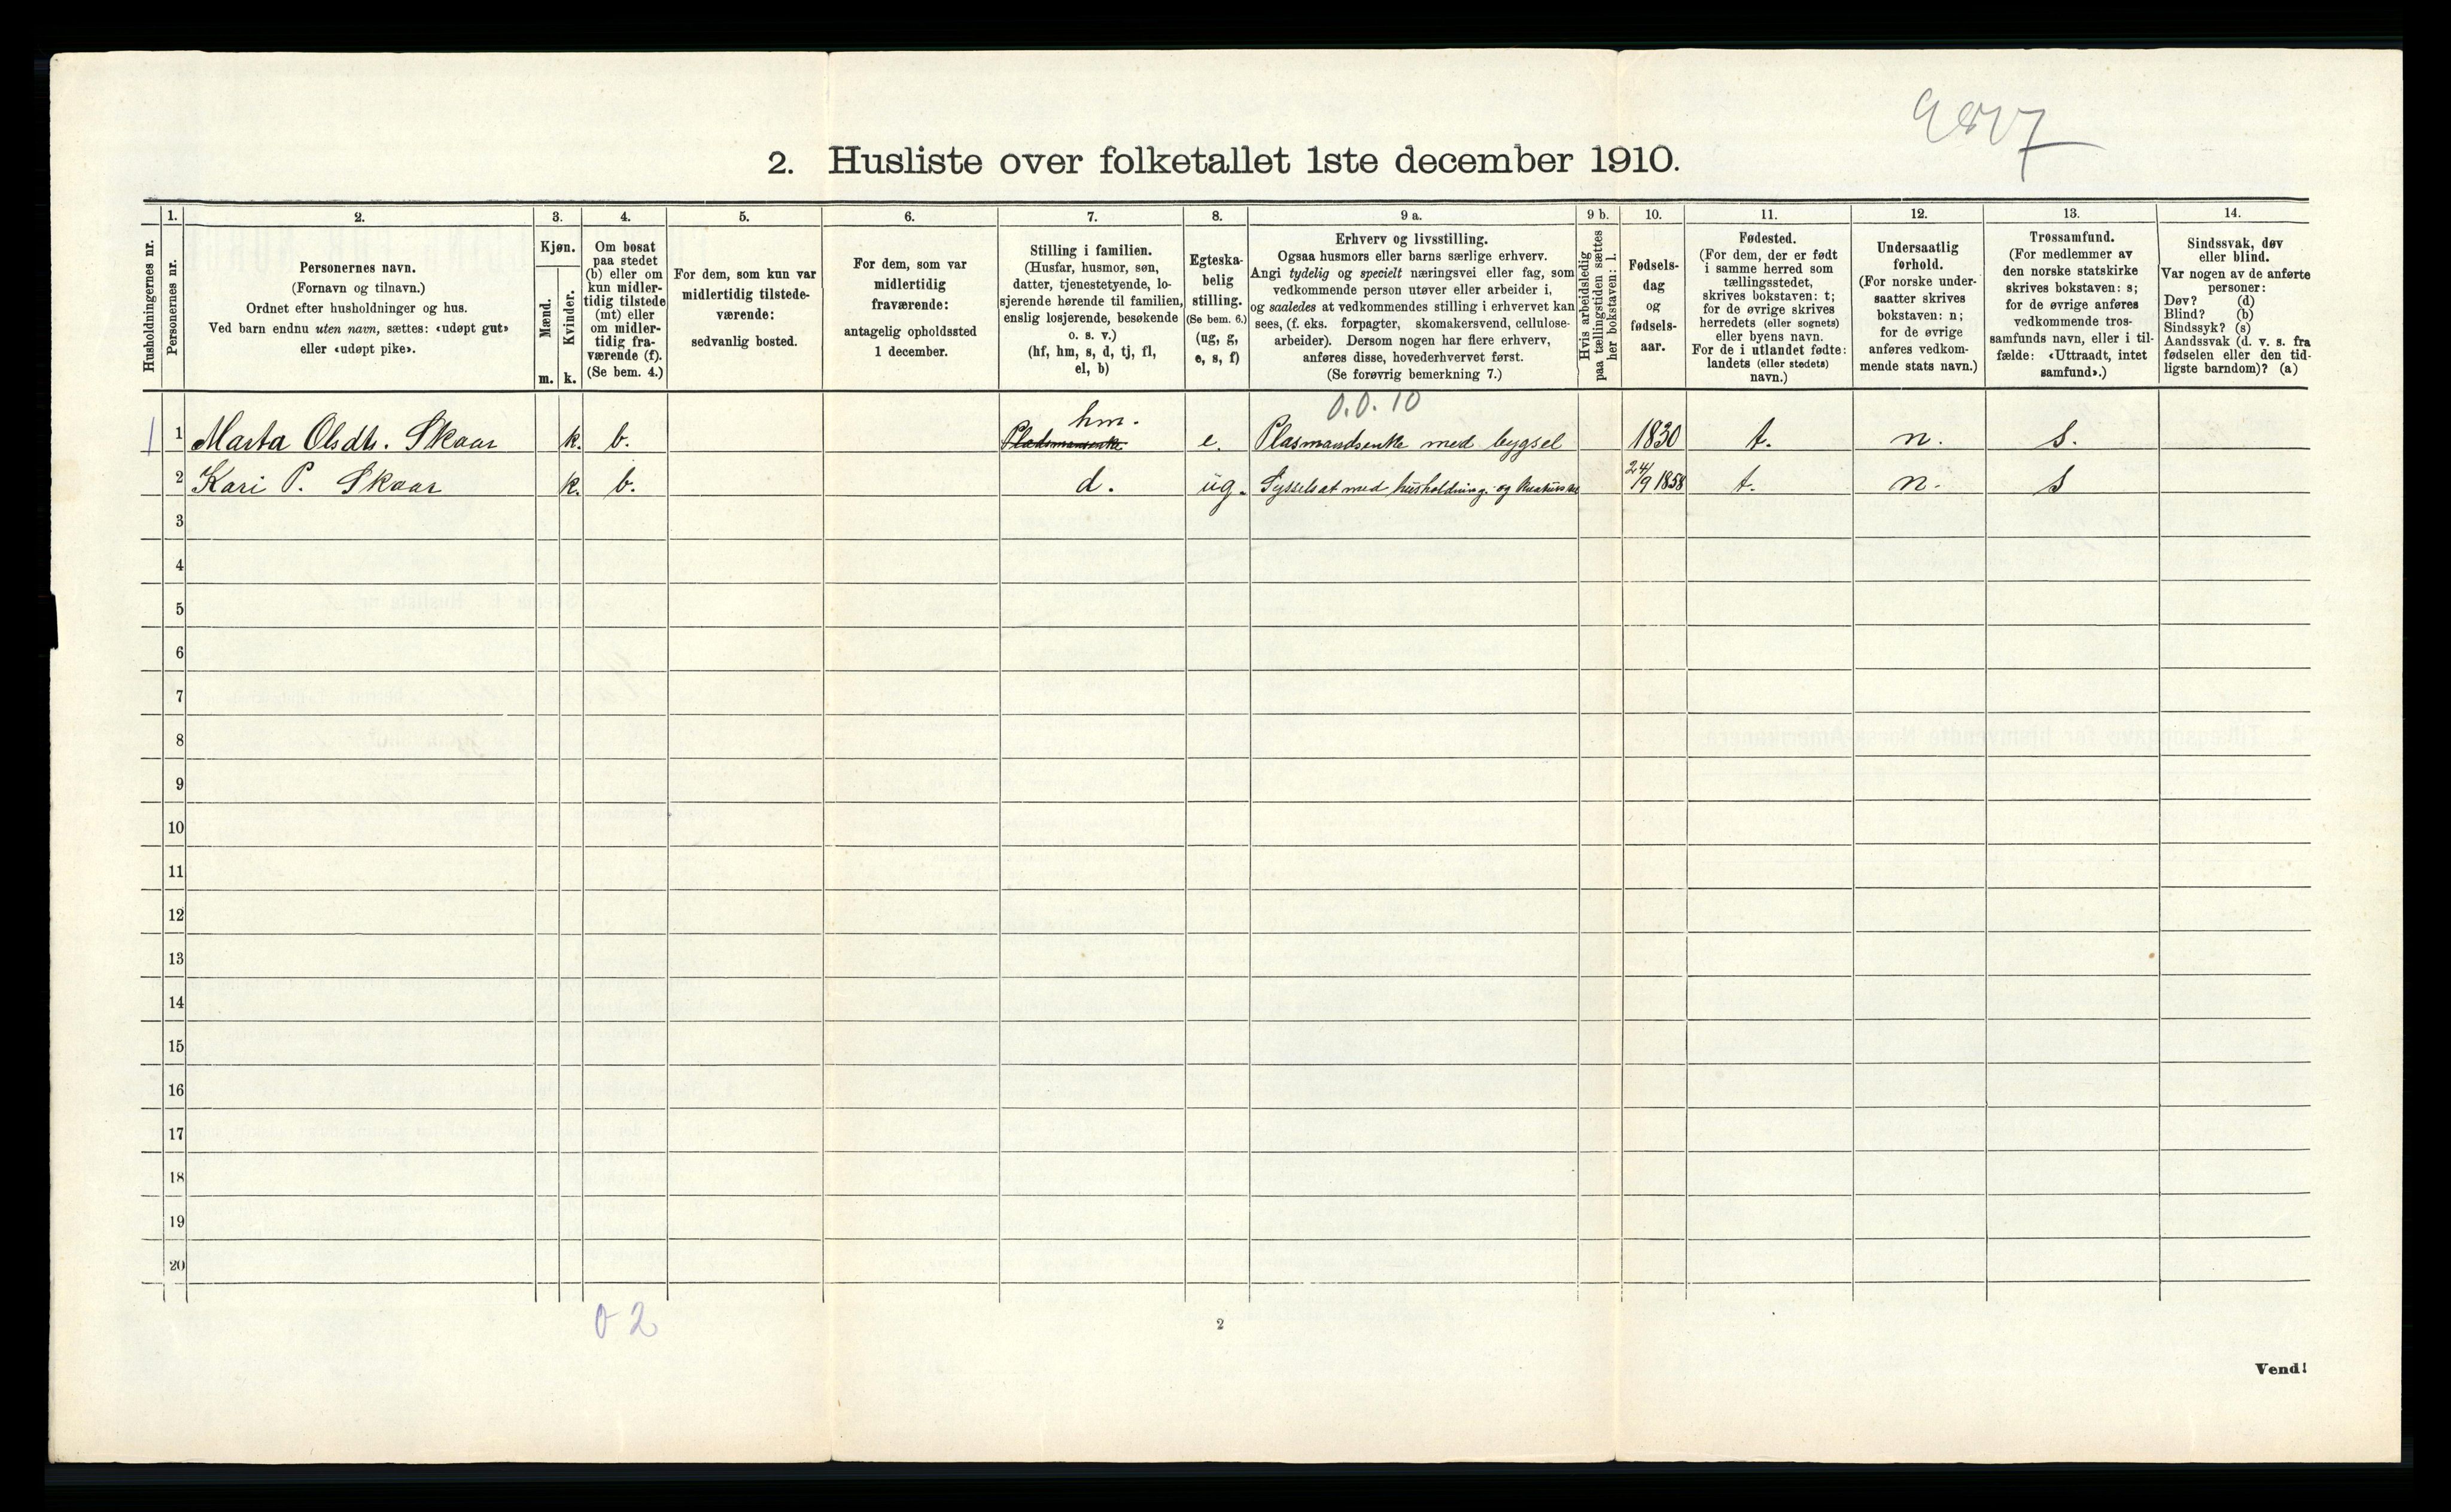 2. Husliste over folketallet 1ste december 1910.
Husholdningernes nr.
1.
Personernes nr.
2.
Personernes navn.
(Fornavn og tilnavn.)
Ordnet efter husholdninger og hus.
Ved barn endnu uten navn, sættes: «udøpt gut»
eller «udøpt pike».
3.
Kjøn.
Mænd.
m.
Kvinder.
k.
4.
Om bosat
paa stedet
(b) eller om
kun midler-
tidig tilstede
(mt) eller
om midler-
tidig fra-
værende (f).
(Se bem. 4.)
5.
For dem, som kun var
midlertidig tilstede-
værende:
sedvanlig bosted.
6.
For dem, som var
midlertidig
fraværende:
antagelig opholdssted
1 december.
7.
Stilling i familien.
(Husfar, husmor, søn,
datter, tjenestetyende, lo-
sjerende hørende til familien,
enslig losjerende, besøkende
o. s. v.)
(hf, hm, s, d, tj, fl,
el, b)
8.
Egteska-
belig
stilling.
(Se bem. 6.)
(ug, g,
e, s, f)
9 a.
Erhverv og livsstilling.
Ogsaa husmors eller barns særlige erhverv.
Angi tydelig og specielt næringsvei eller fag, som
vedkommende person utøver eller arbeider i,
og saaledes at vedkommendes stilling i erhvervet kan
sees, (f. eks. forpagter, skomakersvend, cellulose-
arbeider). Dersom nogen har flere erhverv,
anføres disse, hovederhvervet først.
(Se forøvrig bemerkning 7.)
9 b.
Hvis arbeidsledig
paa tællingstiden sættes
her bokstaven: l.
10.
Fødsels-
dag
og
fødsels-
aar.
11.
Fødested.
(For dem, der er født
i samme herred som
tællingsstedet,
skrives bokstaven: t;
for de øvrige skrives
herredets (eller sognets)
eller byens navn.
For de i utlandet fødte:
landets (eller stedets)
navn.)
12.
Undersaatlig
forhold.
(For norske under-
saatter skrives
bokstaven: n;
for de øvrige
anføres vedkom-
mende stats navn.)
13.
Trossamfund.
(For medlemmer av
den norske statskirke
skrives bokstaven: s;
for de øvrige anføres
vedkommende tros-
samfunds navn, eller i til-
fælde: «Uttraadt, intet
samfund».)
14.
Sindssvak, døv
eller blind.
Var nogen av de anførte
personer:
Døv? (d)
Blind? (b)
Sindssyk? (s)
Aandssvak (d. v. s. fra
fødselen eller den tid-
ligste barndom)? (a)
hm. 0.0.10
1 1 Marta Olsdtr. Skaar k. b. Pladsmansenke e. Plasmandsenke med bygsel 1830 t. n. s.
2 Kari P. Skaar k. b. d. ug. Sysselsat med husholdning og 24/9 1858 t. n. s
3
4
5
6
7
8
9
10
11
12
13
14
15
16
17
18
19
20
0 2
2
Vend!